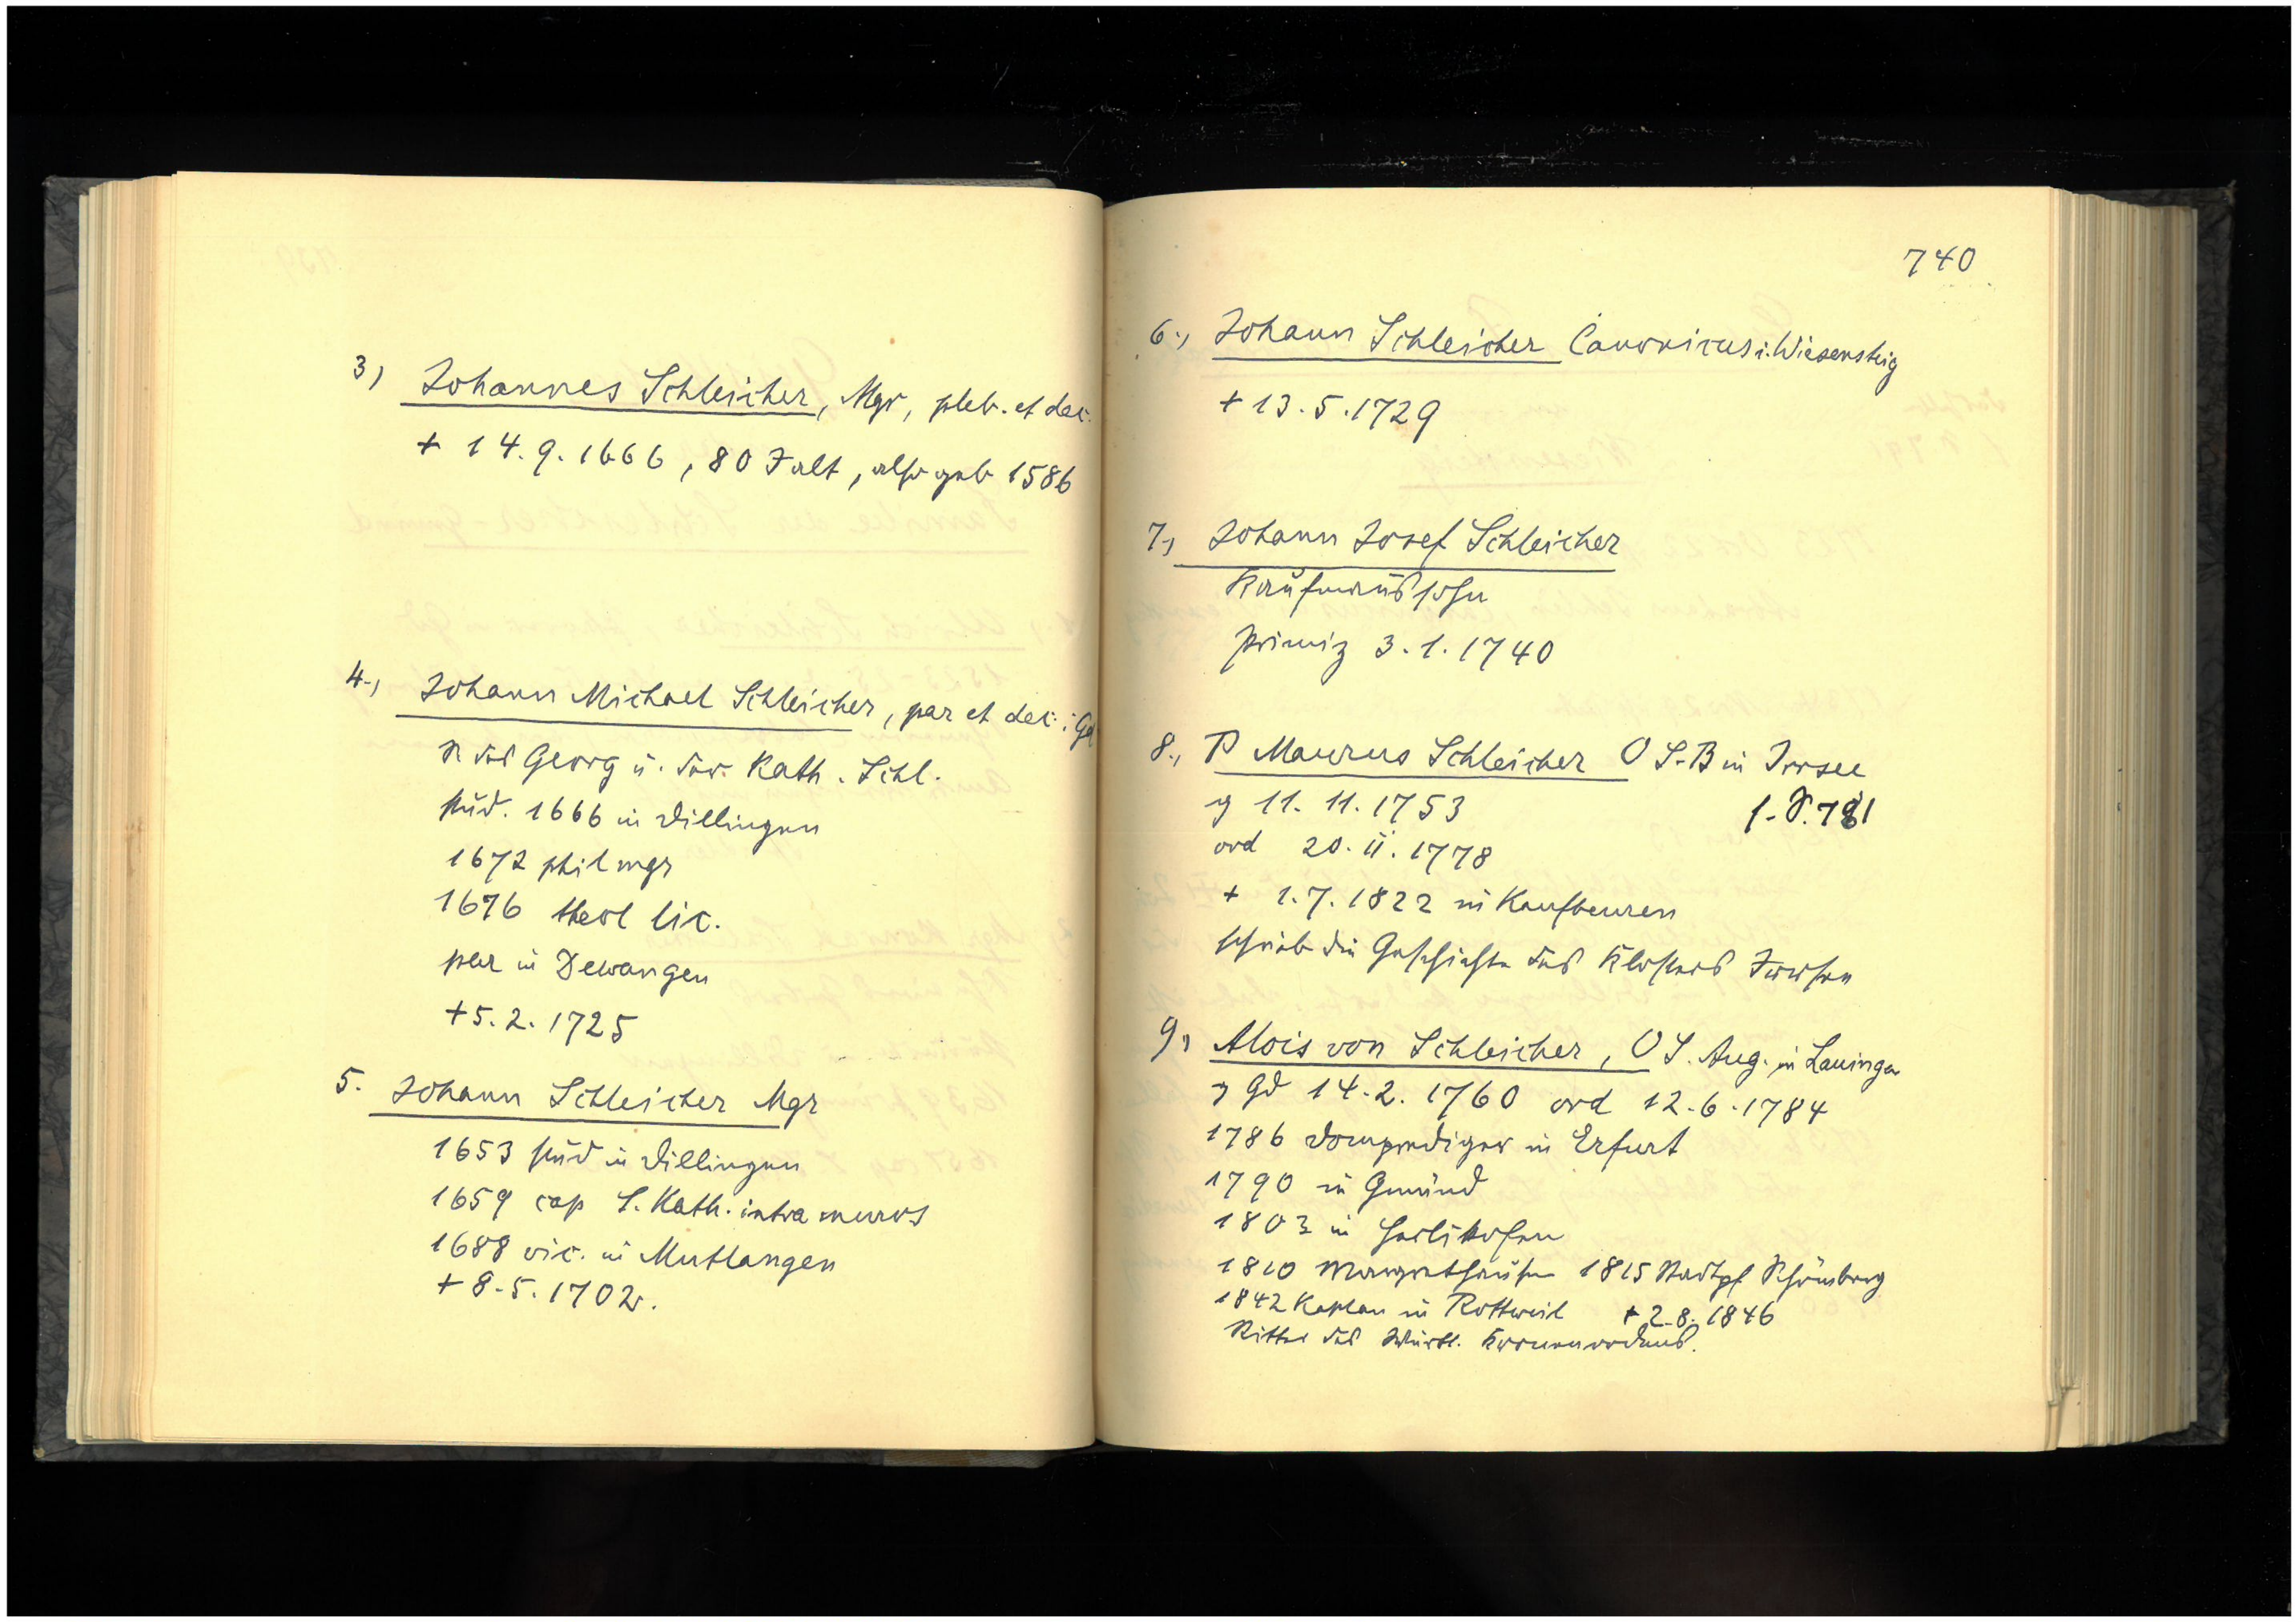 3) Johannes Schleicher, Mgr, pleb. et dec.
+ 14.9.1666, 80 J alt, also geb 1586
4., Johann Michael Schleicher, par et dec. i Gd
S des Georg u. der Kath. Schl.
stud. 1666 in Dillingen
1672 phil mgr
1676 theol lic.
par in Dewangen
+5.2.1725
5. Johann Schleicher Mgr
1653 stud in Dillingen
1659 cap S. Kath. intra muros
1688 vic. in Mutlangen
+ 8.5.1702.
740
6., Johann Schleicher Canonicus i. Wiesensteig
+ 13.5.1729
7, Johann Josef Schleicher
Kaufmannssohn
Primiz 3.1.1740
8., P Maurus Schleicher O S.B in Irrsee
g 11. 11. 1753
s. S. 781
ord 20. II. 1778
+ 1.7.1822 in Kaufbeuren
schrieb die Geschichte des Klosters Irrsee
9, Alois von Schleicher, O S. Aug. in Lauingen
g Gd 14.2.1760 ord 12.6.1784
1786 Domprediger in Erfurt
1790 in Gmünd
1803 in Herlikofen
1810 Margrethausen 1815 Stadtpf Schömberg
1842 Kaplan in Rottweil + 2.8.1846
Ritter des Württ. Kronenordens.